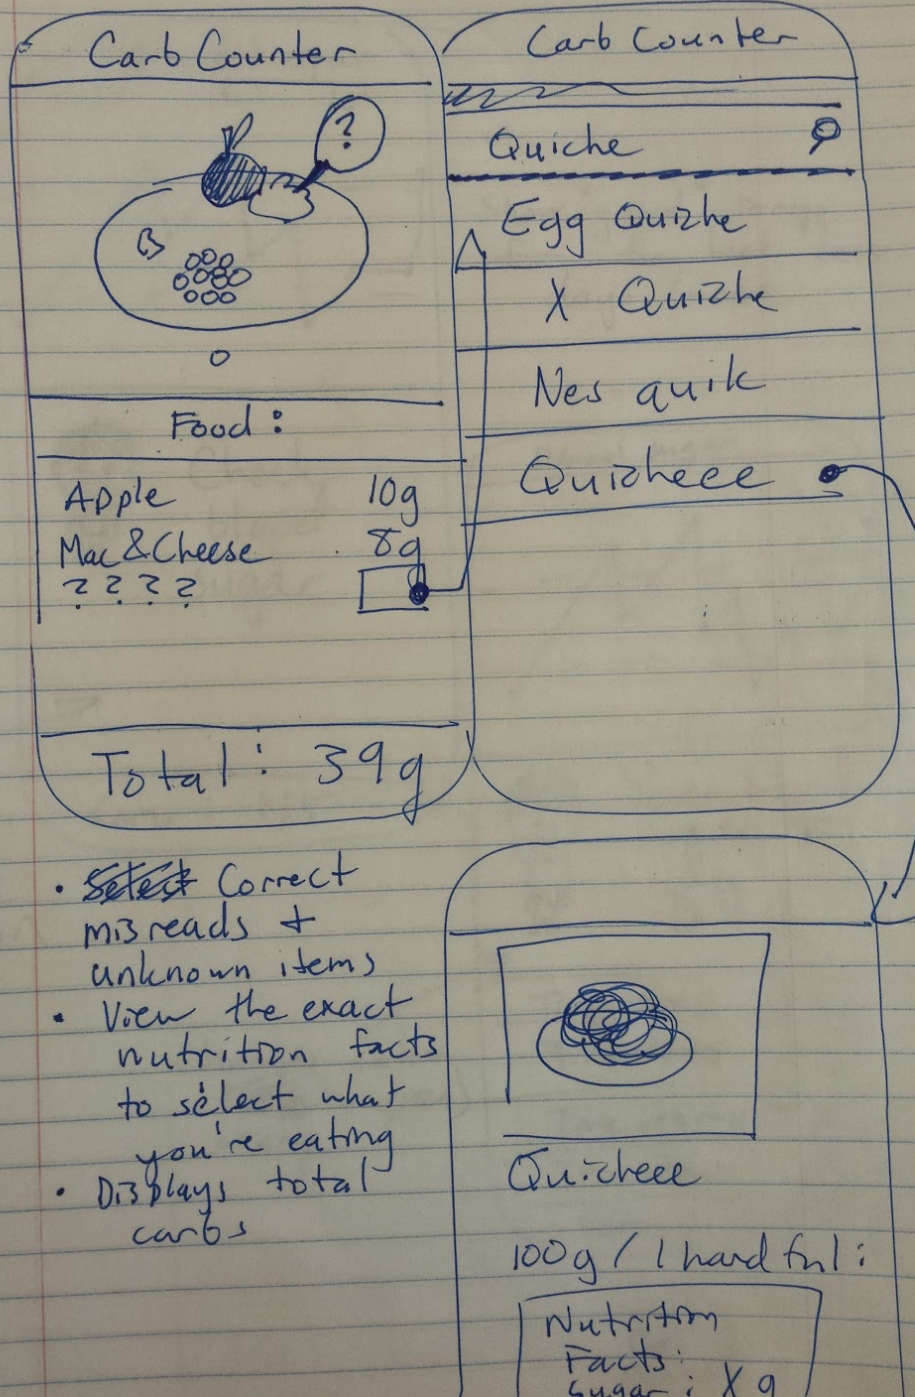 Carb Counter
?
Food:
Apple 10g
Mac & Cheese 8g
? ? ? ?
Total: 39g
Carb Counter
Quiche
Egg Quiche
X Quiche
Nesquik
Quicheee
• Correct
misreads +
unknown items
• View the exact
nutrition facts
to select what
you're eating
• Displays total
carbs
Quicheee
100g / 1 handful:
Nutrition
Facts:
Sugar: Xg